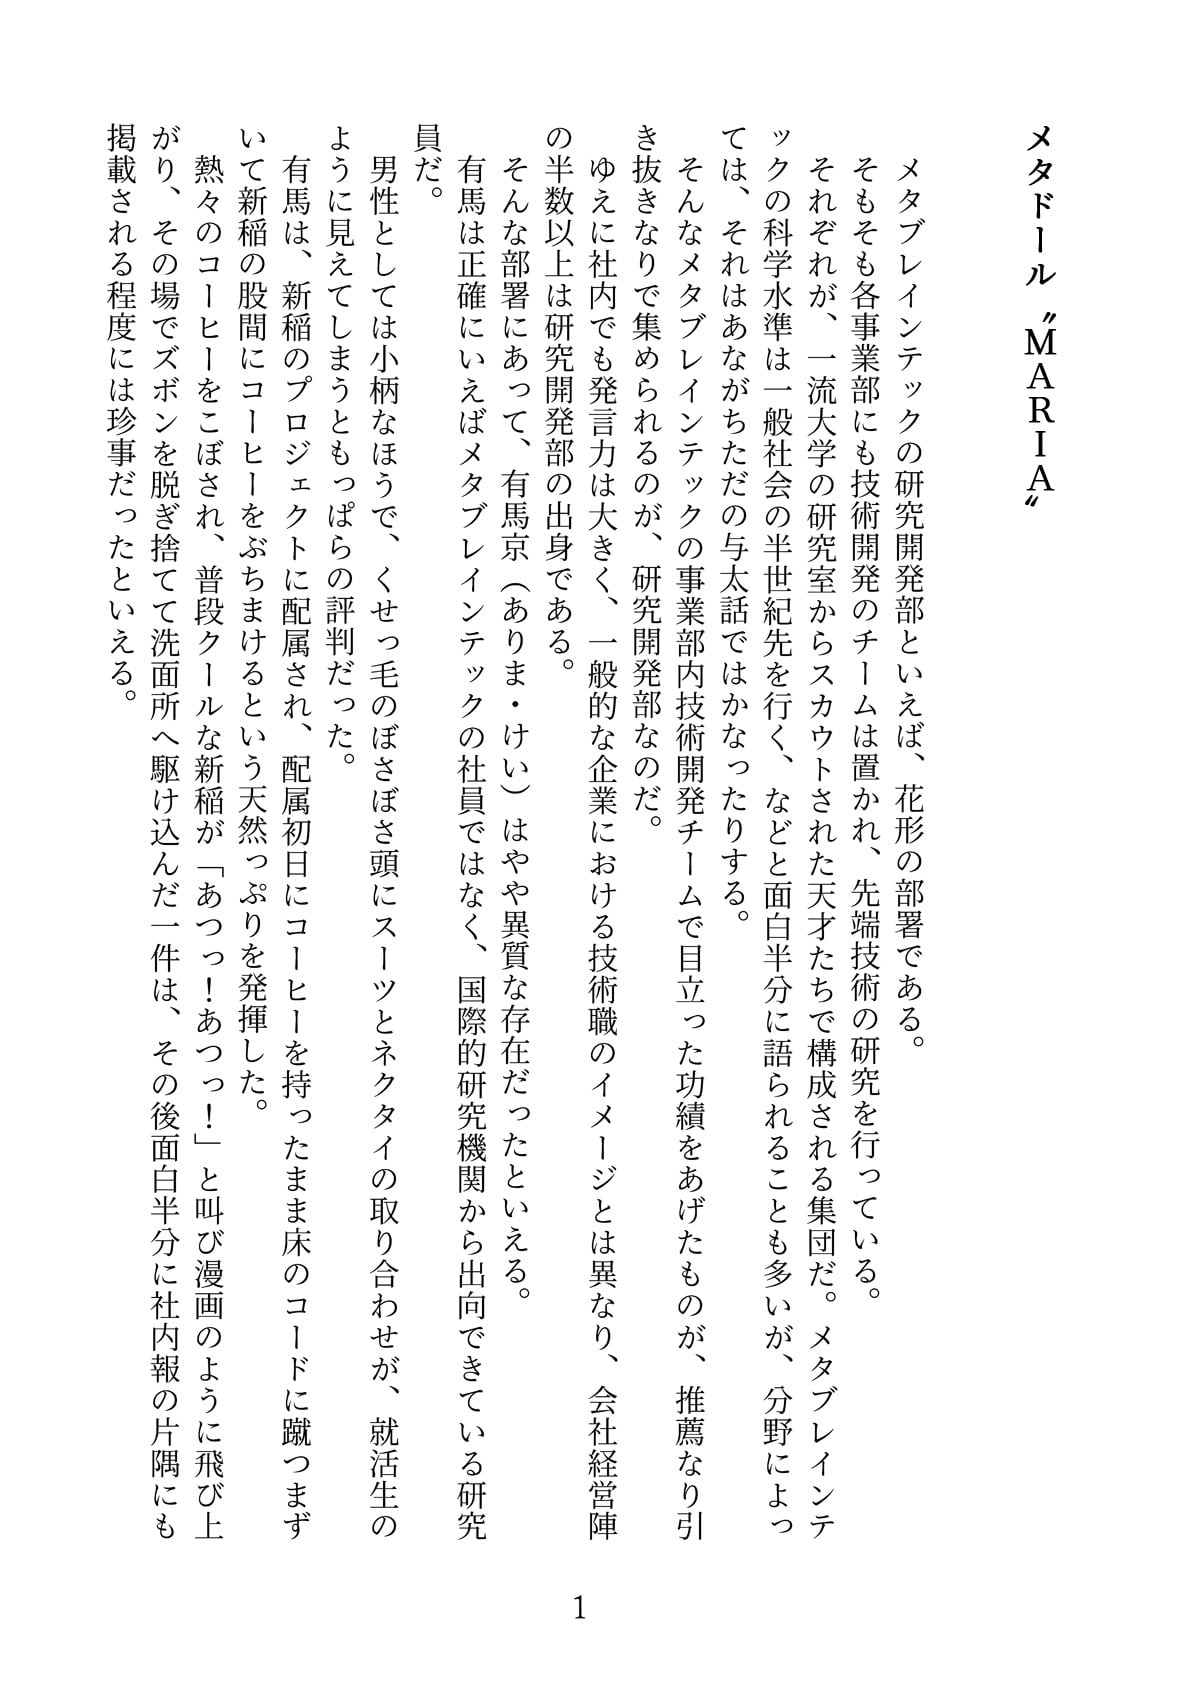 メタドール〝MARIA〟
メタブレインテックの研究開発部といえば、花形の部署である。
そもそも各事業部にも技術開発のチームは置かれ、先端技術の研究を行っている。
それぞれが、一流大学の研究室からスカウトされた天才たちで構成される集団だ。メタブレインテ
ックの科学水準は一般社会の半世紀先を行く、などと面白半分に語られることも多いが、分野によっ
ては、それはあながちただの与太話ではかなったりする。
そんなメタブレインテックの事業部内技術開発チームで目立った功績をあげたものが、推薦なり引
き抜きなりで集められるのが、研究開発部なのだ。
ゆえに社内でも発言力は大きく、一般的な企業における技術職のイメージとは異なり、会社経営陣
の半数以上は研究開発部の出身である。
そんな部署にあって、有馬京（ありま・けい）はやや異質な存在だったといえる。
有馬は正確にいえばメタブレインテックの社員ではなく、国際的研究機関から出向できている研究
員だ。
男性としては小柄なほうで、くせっ毛のぼさぼさ頭にスーツとネクタイの取り合わせが、就活生の
ように見えてしまうともっぱらの評判だった。
有馬は、新稲のプロジェクトに配属され、配属初日にコーヒーを持ったまま床のコードに蹴つまず
いて新稲の股間にコーヒーをぶちまけるという天然っぷりを発揮した。
熱々のコーヒーをこぼされ、普段クールな新稲が「あつっ！あつっ！」と叫び漫画のように飛び上
がり、その場でズボンを脱ぎ捨てて洗面所へ駆け込んだ一件は、その後面白半分に社内報の片隅にも
掲載される程度には珍事だったといえる。
1